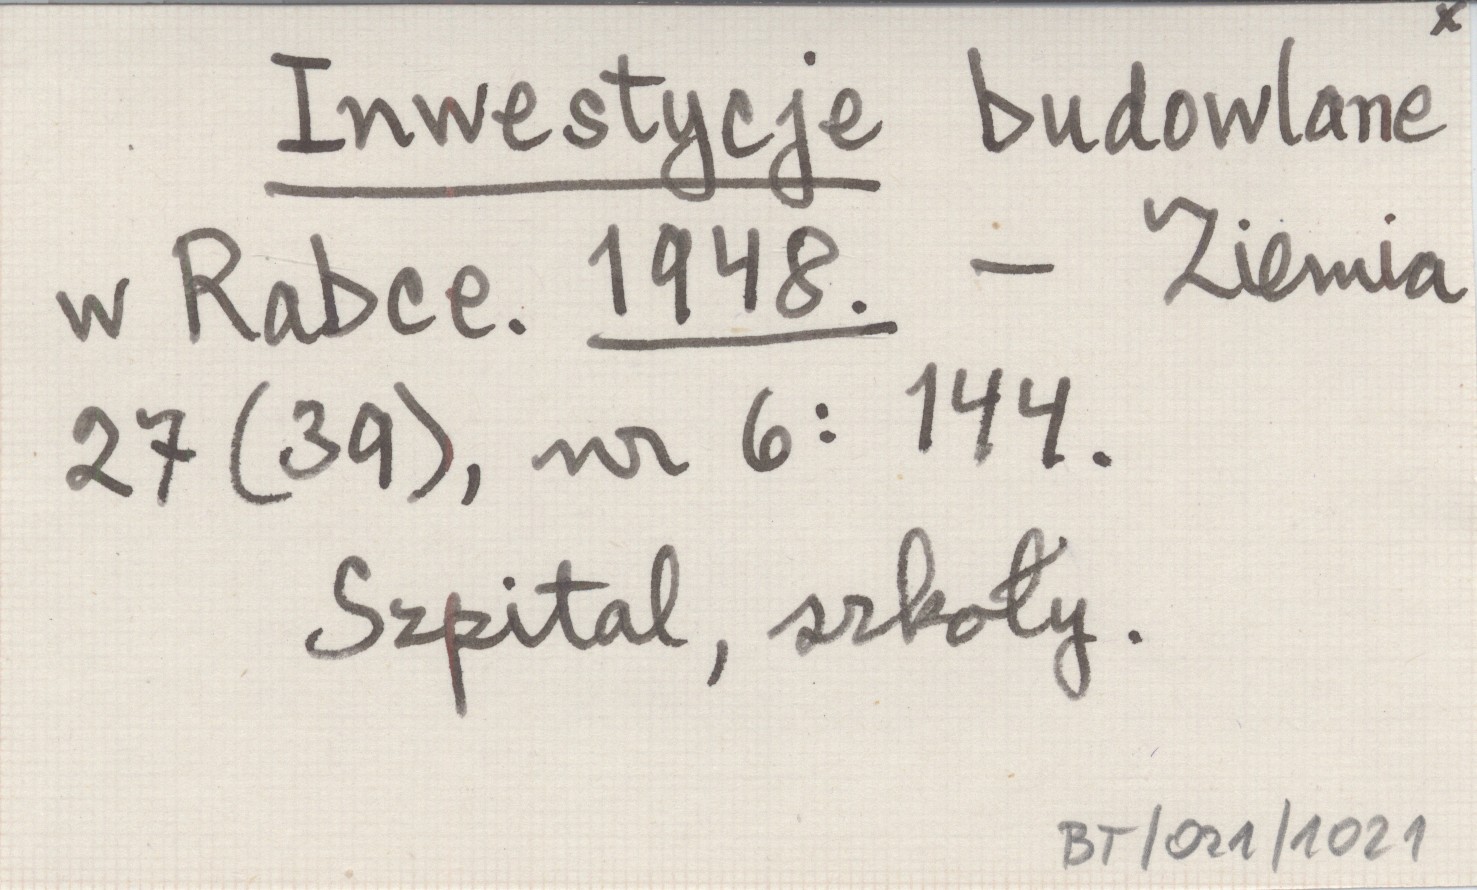 x
Inwestycje budowlane
w Rabce. 1948. – Ziemia
27 (39), nr 6: 144.
Szpital, szkoły.
BT/021/1021